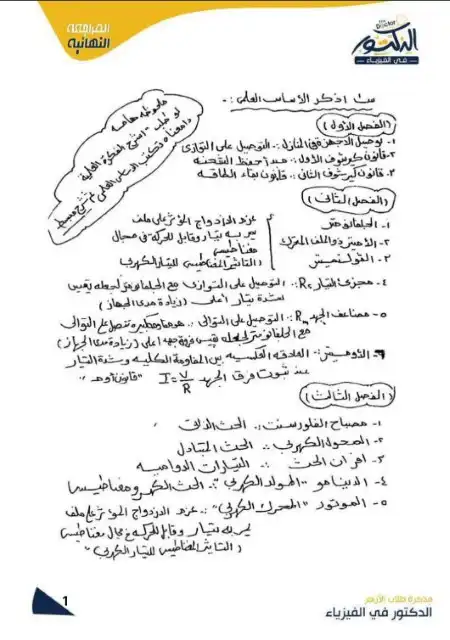 المراجعة
النهائية
الدكتور
في الفيزياء
س١ اذكر الأساس العلمى :-
ملحوظة هامة
لو طلب اشرح الفكرة العلمية
(الفصل الأول)
١- توصيل الأجهزة في المنازل :. التوصيل على التوازى
٢- قانون كيرشوف الأول :. مبدأ حفظ الشحنة
٣- قانون كيرشوف الثانى :. قانون بقاء الطاقة
(الفصل الثانى)
١- الجلفانومتر
٢- الأميتر ذو الملف المتحرك
٣- الفولتميتر
عزم الازدواج المؤثر على ملف
يمر به تيار وقابل للحركة في مجال
مغناطيسى
(التأثير المغناطيسى للتيار الكهربى)
٤- مجزئ التيار Rs :. التوصيل على التوازى مع الجلفانومتر لجعله يقيس
شدة تيار أعلى (زيادة مدى الجهاز)
٥- مضاعف الجهد Rm :. التوصيل على التوالى .. تتصل على التوالى
مع الجلفانومتر لجعله يقيس فرق جهد أعلى (زيادة مدى الجهاز)
٦- الأوميتر :. العلاقة العكسية بين المقاومة الكلية وشدة التيار
عند ثبوت فرق الجهد I = V/R "قانون أوم"
(الفصل الثالث)
١- مصباح الفلورسنت :. الحث الذاتى
٢- المحول الكهربى :. الحث المتبادل
٣- افران الحث :. التيارات الدوامية
٤- الدينامو "المولد الكهربى" :. الحث الكهرومغناطيسى
٥- الموتور "المحرك الكهربى" :. عزم الازدواج المؤثر على ملف
يمر به تيار وقابل للحركة في مجال مغناطيسى
(التأثير المغناطيسى للتيار الكهربى)
1
مذكرة طلاب الأزهر
الدكتور في الفيزياء